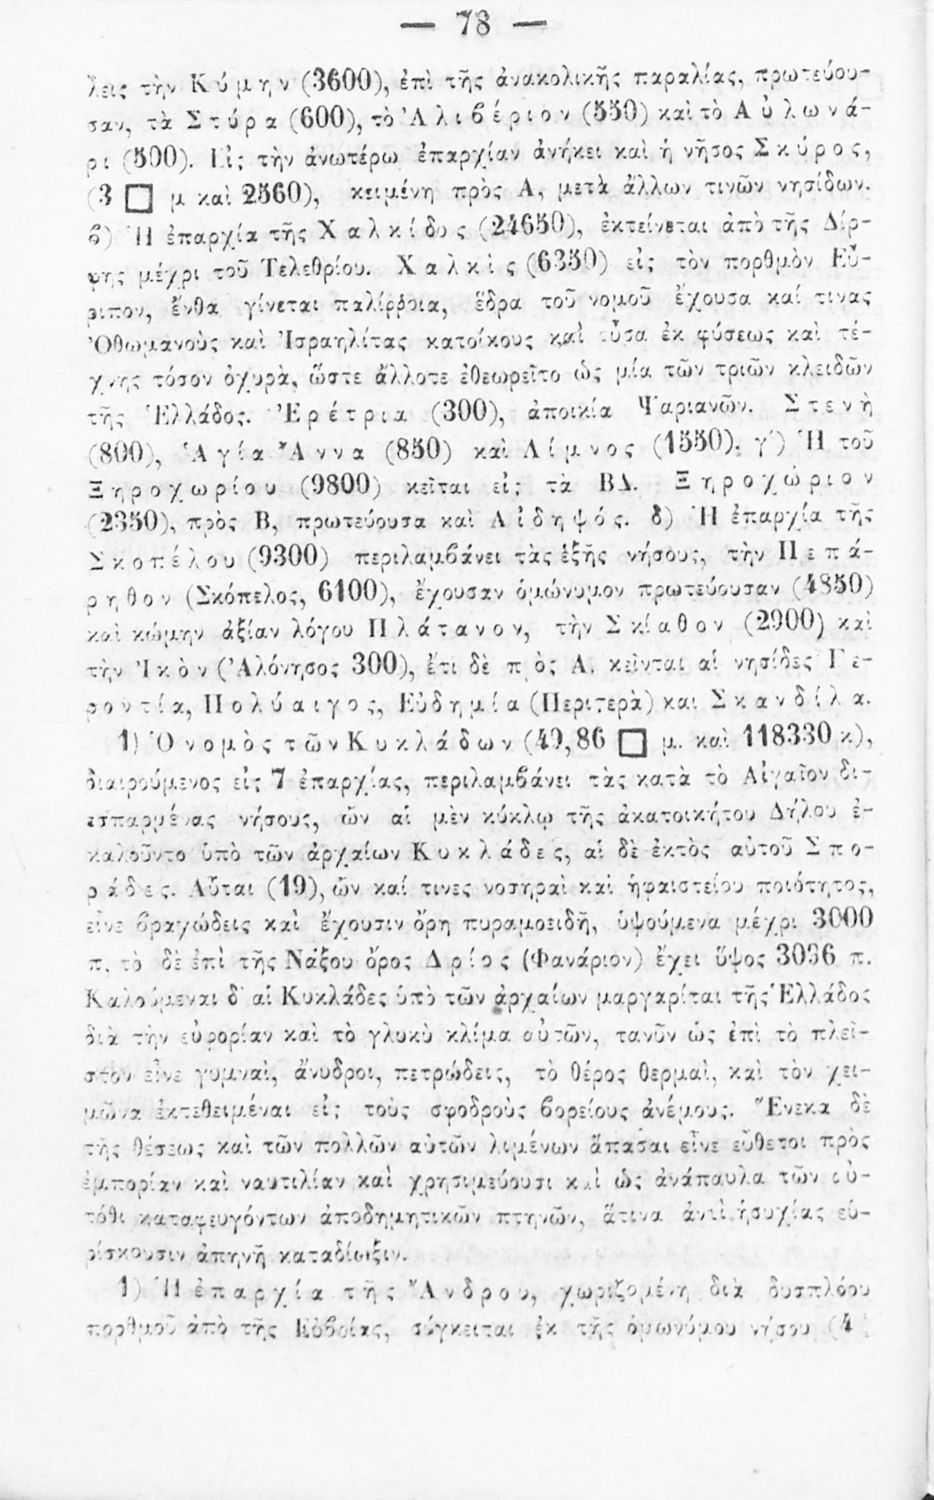 — 78 —
λεις τὴν Κύμην (3600), ἐπὶ τῆς ἀνακολικῆς παραλίας, πρωτεύου-
σαν, τὰ Στύρα (600), τὸ Ἀλιβέριον (550) καὶ τὸ Αὐλωνά-
ρι (500). Εἰς τὴν ἀνωτέρω ἐπαρχίαν ἀνήκει καὶ ἡ νῆσος Σκύρος,
(3 □ μ καὶ 2560), κειμένη πρὸς Α, μετὰ ἄλλων τινῶν νησίδων.
β) Ἡ ἐπαρχία τῆς Χαλκίδος (24650), ἐκτείνεται ἀπὸ τῆς Δίρ-
φης μέχρι τοῦ Τελεθρίου. Χαλκὶς (6350) εἰς τὸν πορθμὸν Εὔ-
ριπον, ἔνθα γίνεται παλίῤῥοια, ἕδρα τοῦ νομοῦ ἔχουσα καί τινας
Ὀθωμανοὺς καὶ Ἰσραηλίτας κατοίκους καὶ οὖσα ἐκ φύσεως καὶ τέ-
χνης τόσον ὀχυρὰ, ὥστε ἄλλοτε ἐθεωρεῖτο ὡς μία τῶν τριῶν κλειδῶν
τῆς Ἑλλάδος. Ἐρέτρια (300), ἀποικία Ψαριανῶν. Στενὴ
(800), Ἁγία Ἄννα (850) καὶ Λίμνος (1550). γ') Ἡ τοῦ
Ξηροχωρίου (9800) κεῖται εἰς τὰ ΒΔ. Ξηροχώριον
(2350), πρὸς Β, πρωτεύουσα καὶ Αἰδηψός. δ) Ἡ ἐπαρχία τῆς
Σκοπέλου (9300) περιλαμβάνει τὰς ἑξῆς νήσους, τὴν Πεπά-
ρηθον (Σκόπελος, 6100), ἔχουσαν ὁμώνυμον πρωτεύουσαν (4850)
καὶ κώμην ἀξίαν λόγου Πλάτανον, τὴν Σκίαθον (2900) καὶ
τὴν Ἰκὸν (Ἀλόνησος 300), ἔτι δὲ πρὸς Α. κεῖνται αἱ νησίδες Γε-
ροντία, Πολύαιγος, Εὐδημία (Περιτερὰ) και Σκανδίλα.
1) Ὁ νομὸς τῶν Κυκλάδων (49,86 □ μ. καὶ 118330 κ),
διαιρούμενος εἰς 7 ἐπαρχίας, περιλαμβάνει τὰς κατὰ τὸ Αἰγαῖον δι-
εσπαρμένας νήσους, ὧν αἱ μὲν κύκλῳ τῆς ἀκατοικήτου Δήλου ἐ-
καλοῦντο ὑπὸ τῶν ἀρχαίων Κυκλάδες, αἱ δὲ ἐκτὸς αὐτοῦ Σπο-
ράδες. Αὗται (19), ὧν καί τινες νοσηραὶ καὶ ἡφαιστείου ποιότητος,
εἶνε βραχώδεις καὶ ἔχουσιν ὄρη πυραμοειδῆ, ὑψούμενα μέχρι 3000
π. τὸ δὲ ἐπὶ τῆς Νάξου ὄρος Δρίος (Φανάριον) ἔχει ὕψος 3036 π.
Καλούμεναι δ' αἱ Κυκλάδες ὑπὸ τῶν ἀρχαίων μαργαρίται τῆς Ἑλλάδος
διὰ τὴν εὐφορίαν καὶ τὸ γλυκὺ κλίμα αὐτῶν, τανῦν ὡς ἐπὶ τὸ πλεῖ-
στον εἶνε γυμναὶ, ἄνυδροι, πετρώδεις, τὸ θέρος θερμαὶ, καὶ τὸν χει-
μῶνα ἐκτεθειμέναι εἰς τοὺς σφοδροὺς βορείους ἀνέμους. Ἕνεκα δὲ
τῆς θέσεως καὶ τῶν πολλῶν αὐτῶν λιμένων ἅπασαι εἶνε εὔθετοι πρὸς
ἐμπορίαν καὶ ναυτιλίαν καὶ χρησιμεύουσι καὶ ὡς ἀνάπαυλα τῶν αὐ-
τόθι καταφευγόντων ἀποδημητικῶν πτηνῶν, ἅτινα ἀντὶ ἡσυχίας εὑ-
ρίσκουσιν ἀπηνῆ καταδίωξιν.
1) Ἡ ἐπαρχία τῆς Ἄνδρου, χωριζομένη διὰ δυσπλόου
πορθμοῦ ἀπὸ τῆς Εὐβοίας, σύγκειται ἐκ τῆς ὁμωνύμου νήσου (4